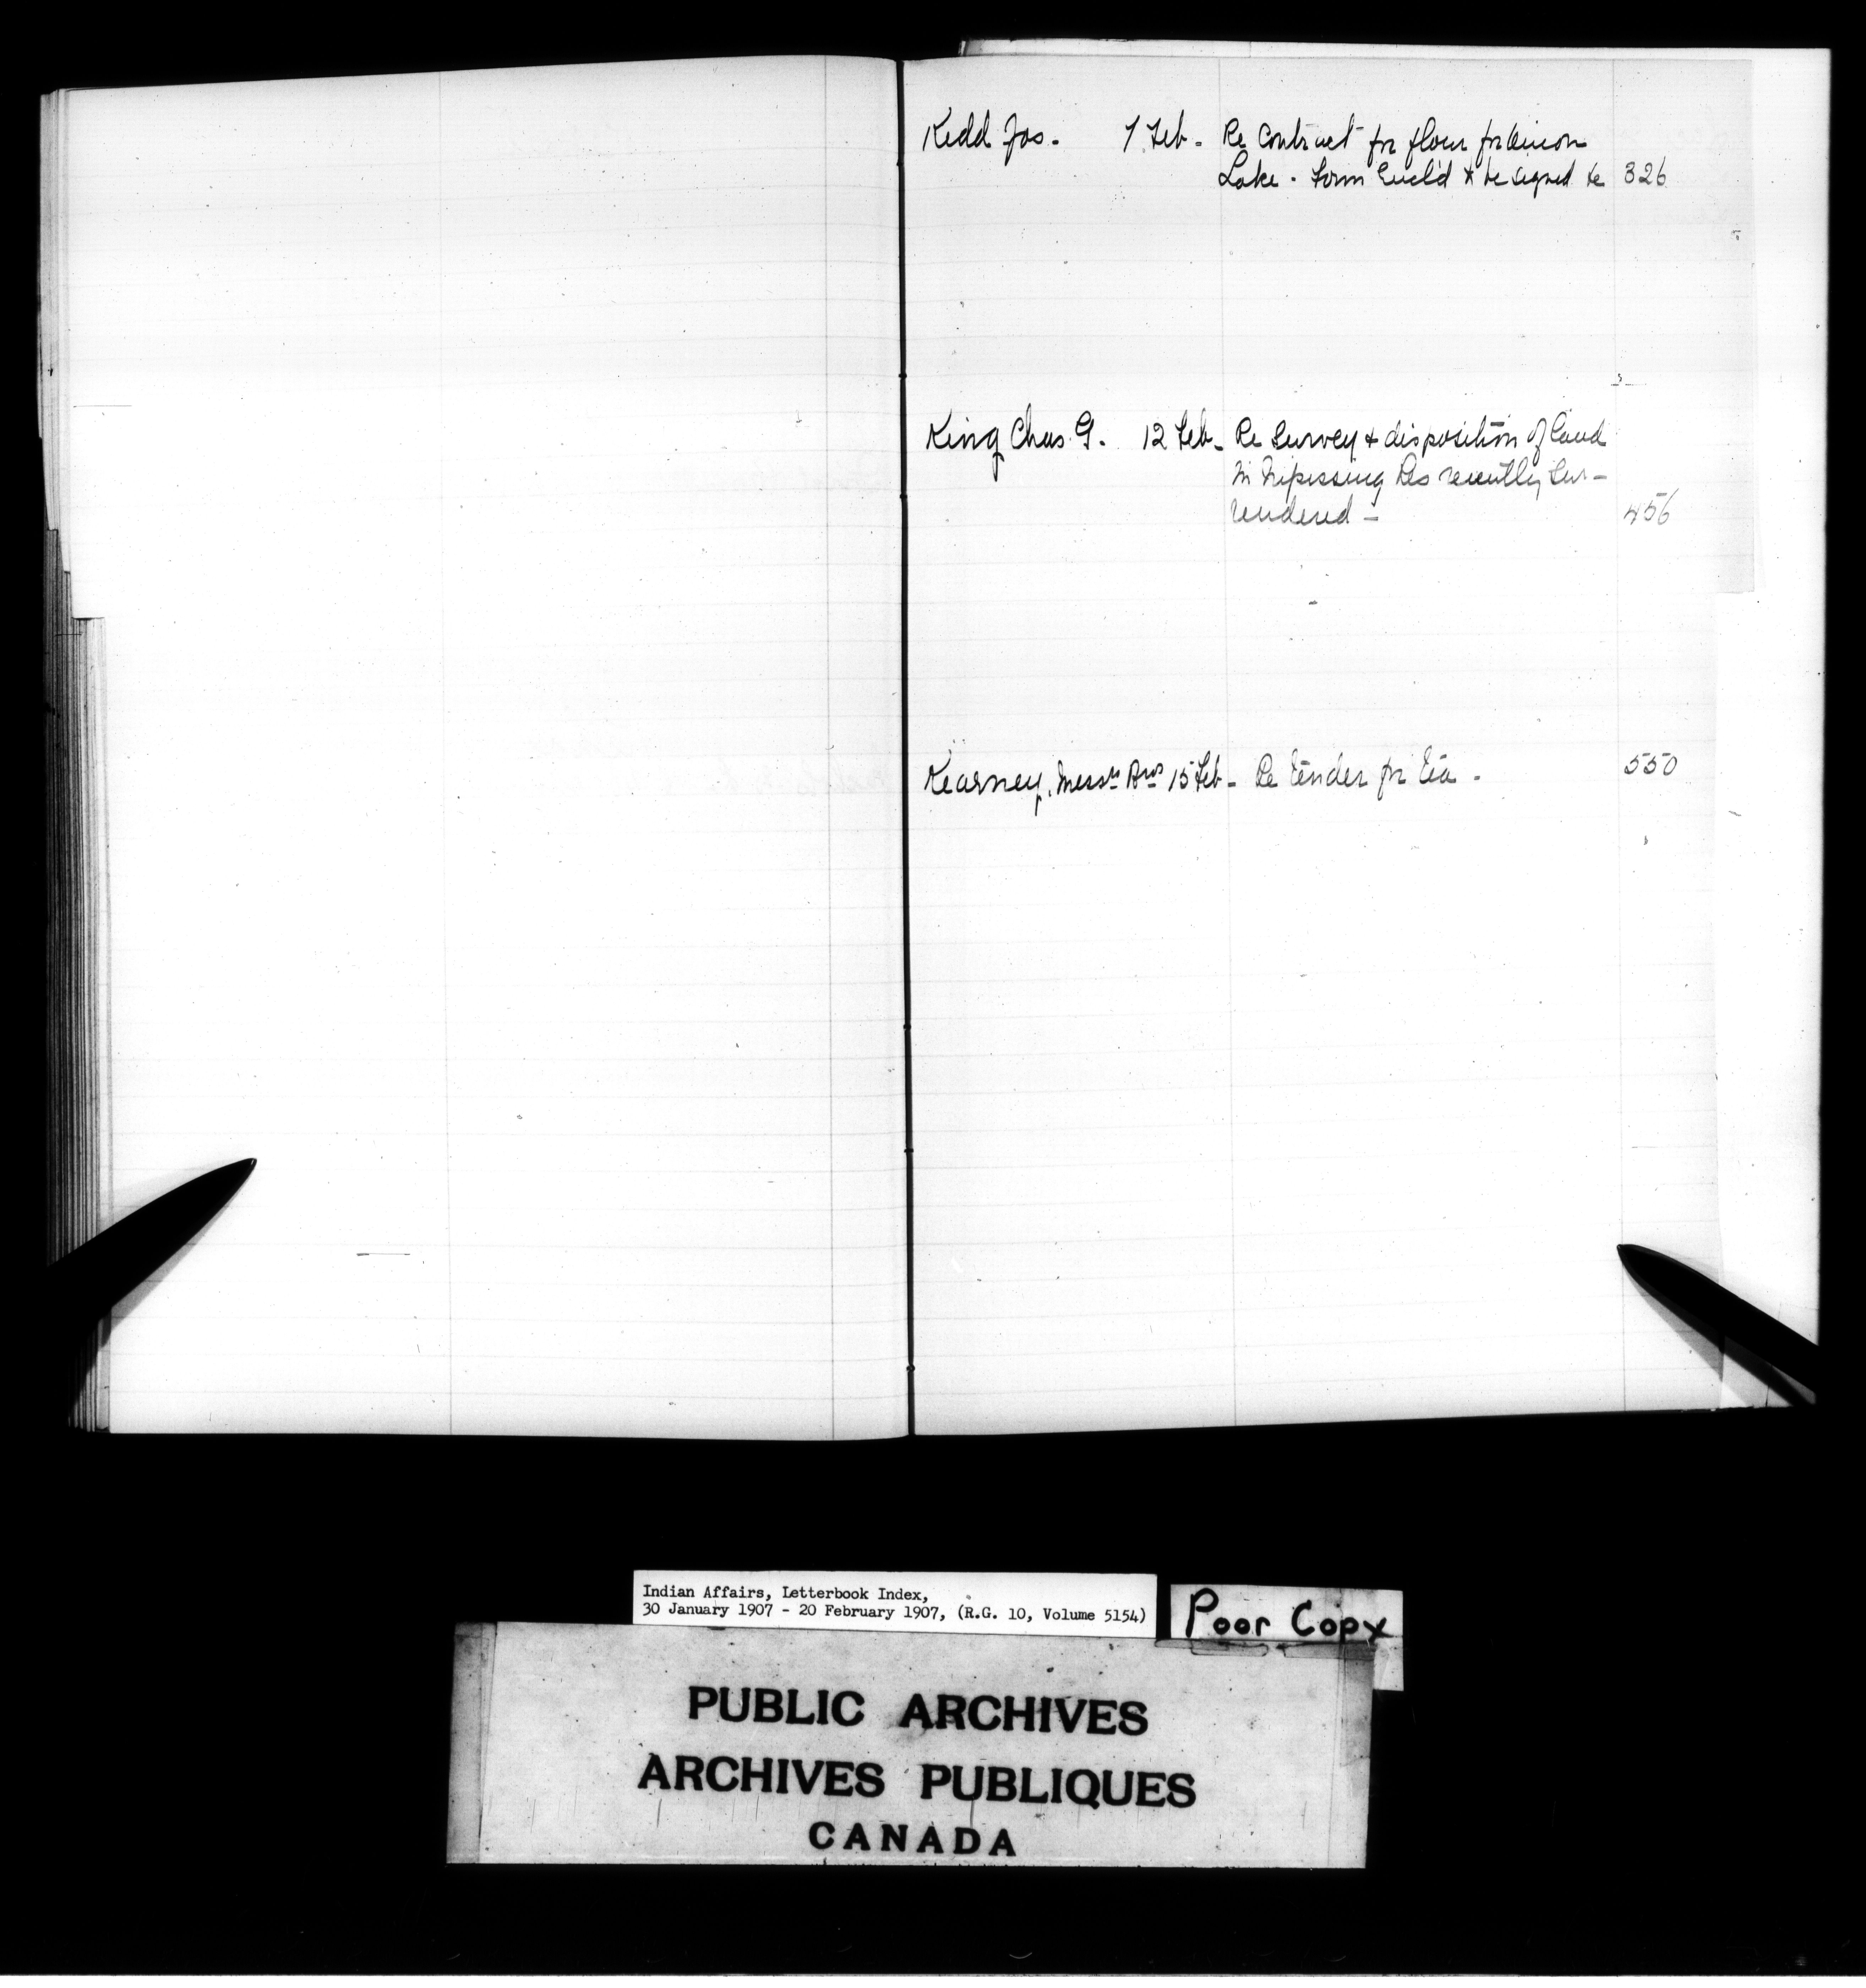 Kidd Jas. 7 Feb - Re Contract for flour for Simon
Lake. Form Encl'd to be signed &c 326
King Chas. G. 12 Feb - Re Survey & disposition of land
in Nipissing Res recently Sur-
rendered - 456
Kearney, Messrs Bros 15 Feb - Re tender for tea. 550
Indian Affairs, Letterbook Index,
30 January 1907 - 20 February 1907, (R.G. 10, Volume 5154)
Poor Copy
PUBLIC ARCHIVES
ARCHIVES PUBLIQUES
CANADA